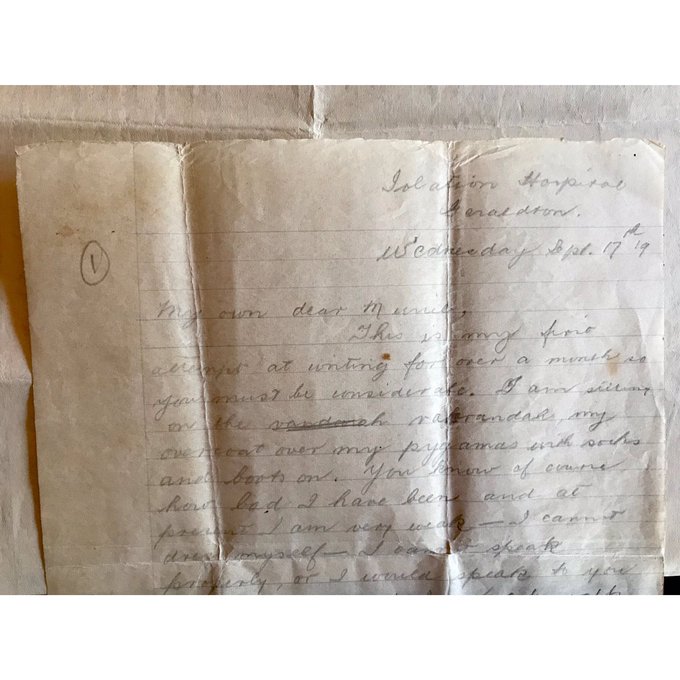 Isolation Hospital
Geraldton.
Wednesday Sept. 17th 19
1
My own dear Muriel,
This is my first
attempt at writing for over a month so
you must be considerate. I am sitting
on the verandah, my
overcoat over my pyjamas with socks
and boots on. You know of course
how bad I have been and at
present I am very weak — I cannot
dress myself — I can't speak
properly, or I would speak to you